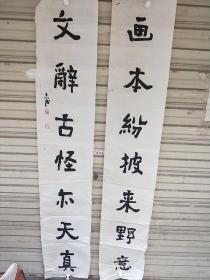 画本纷披来野意
文辭古怪尔天真